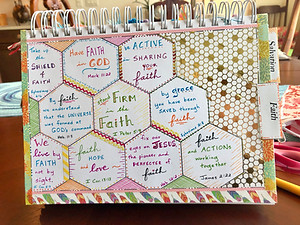 Take up
the
SHIELD
of
FAITH
Have FAITH
in GOD
Mark 11:22
be ACTIVE
in
SHARING
YOUR
faith
By faith
we understand
that the UNIVERSE
was formed at
GOD'S command
Heb. 11:3
Stand FIRM
in the
Faith
I Peter 5:9
by grace
you have been
SAVED through
faith
Ephesians 2:8
We
live by
FAITH
not
by
sight.
faith
HOPE
and love
I Cor. 13:13
Fix our
eyes on JESUS
the pioneer and
PERFECTER of
faith
Heb. 12:2
faith
and ACTIONS
working
together
James 2:22
Salvation
Faith